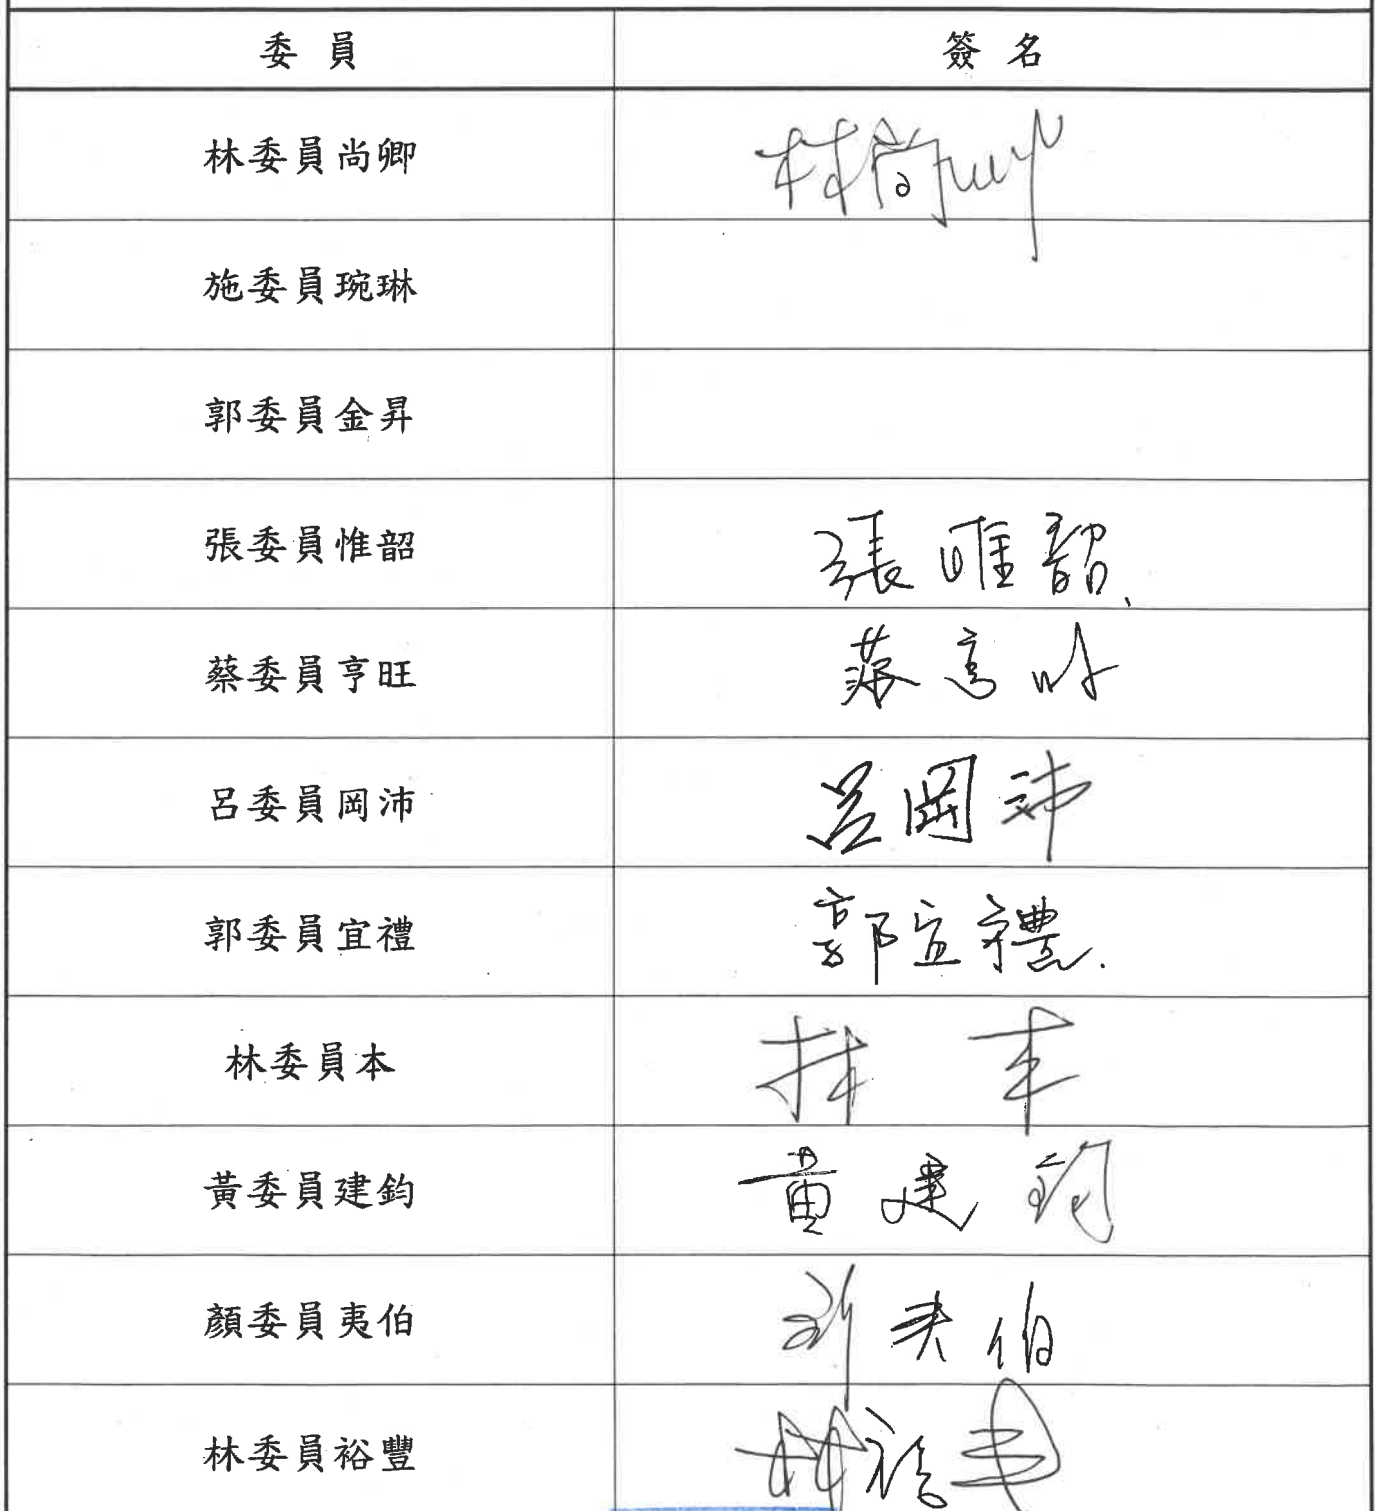 委員 簽名
林委員尚卿 林尚卿
施委員琬琳
郭委員金昇
張委員惟韶 張惟韶
蔡委員亨旺 蔡亨旺
呂委員岡沛 呂岡沛
郭委員宜禮 郭宜禮
林委員本 林本
黃委員建鈞 黃建鈞
顏委員夷伯 夷伯
林委員裕豐 林裕豐